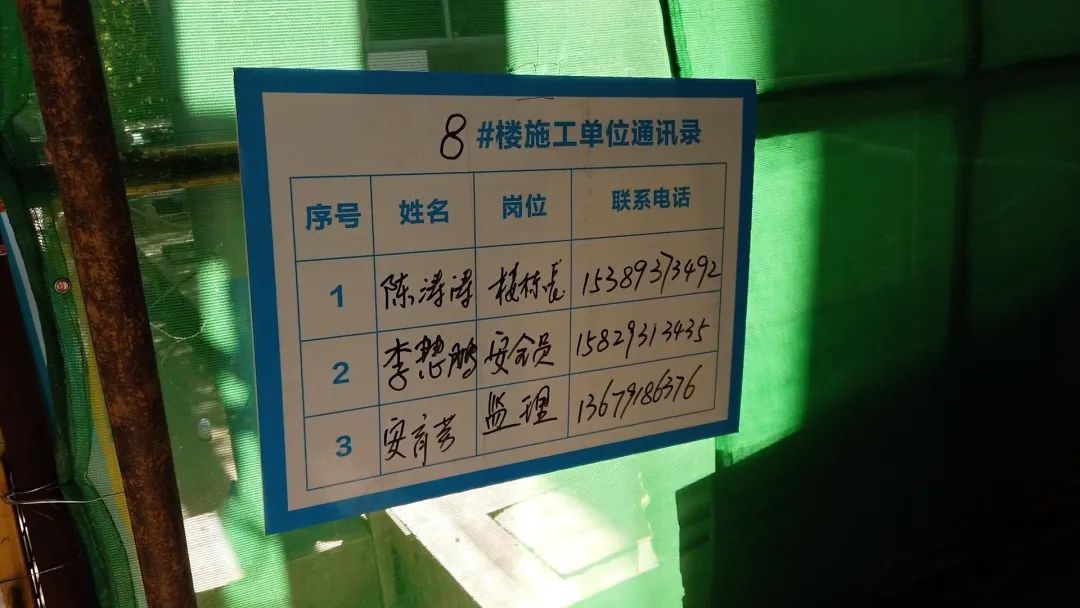 8#楼施工单位通讯录
序号 姓名 岗位 联系电话
1 陈涛涛 楼栋長 15389373492
2 李慧鹏 安全员 15829313435
3 安育芳 监理 13679186376